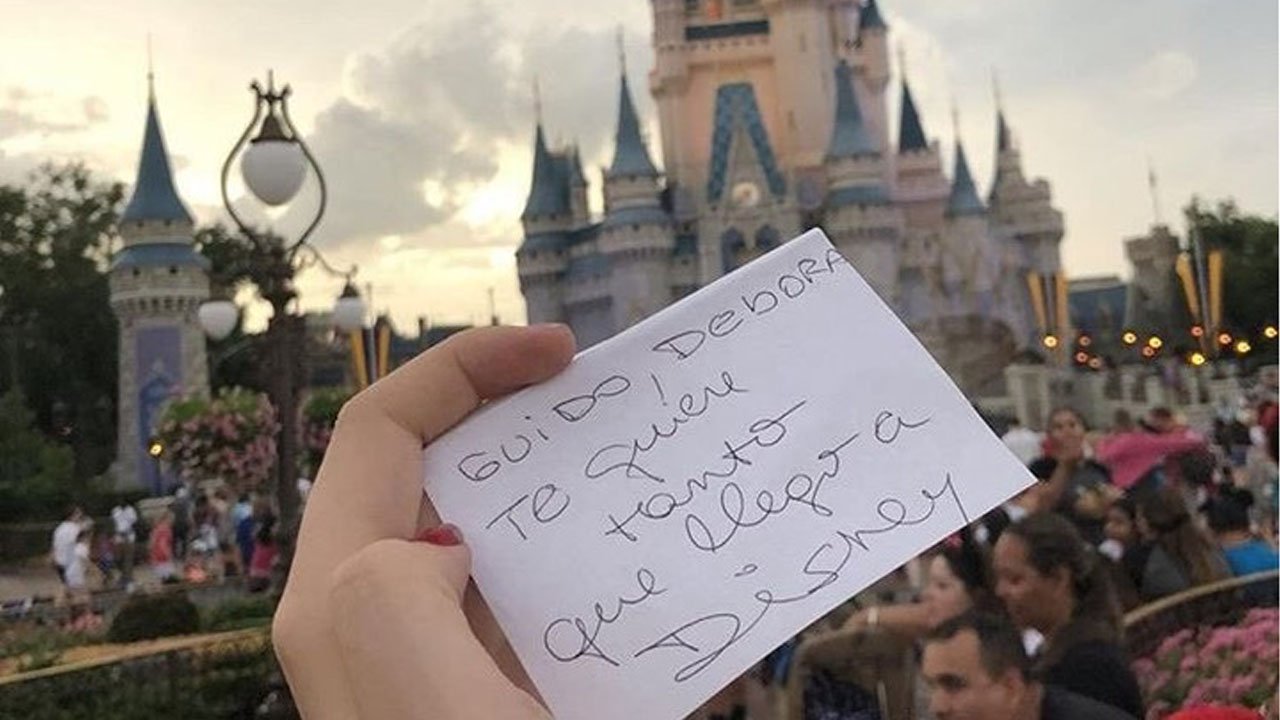 GUiDO, DEbORA
TE quiere
tanto
que llego a
Disney